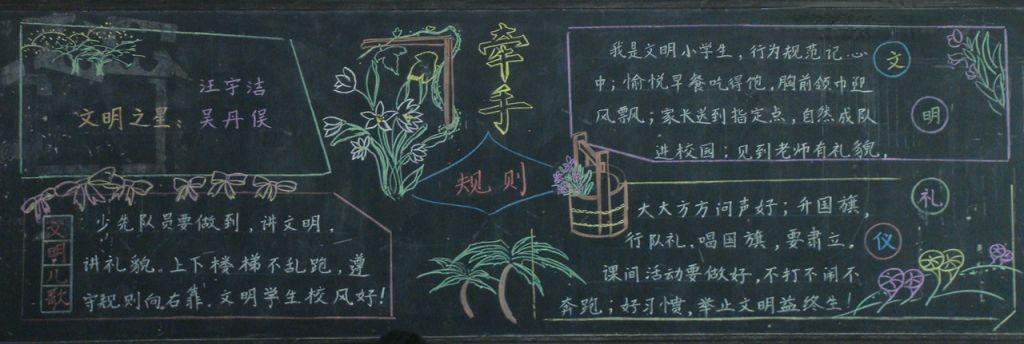 汪宇洁
文明之星：吴丹俣
文明儿歌
少先队员要做到，讲文明，
讲礼貌。上下楼梯不乱跑，遵
守规则向右靠。文明学生校风好！
牵手
规则
文明礼仪
我是文明小学生，行为规范记心
中；愉悦早餐吃得饱，胸前领巾迎
风飘；家长送到指定点，自然成队
进校园；见到老师有礼貌，
大大方方问声好；升国旗，
行队礼。唱国旗，要肃立。
课间活动要做好，不打不闹不
奔跑；好习惯，举止文明益终生！